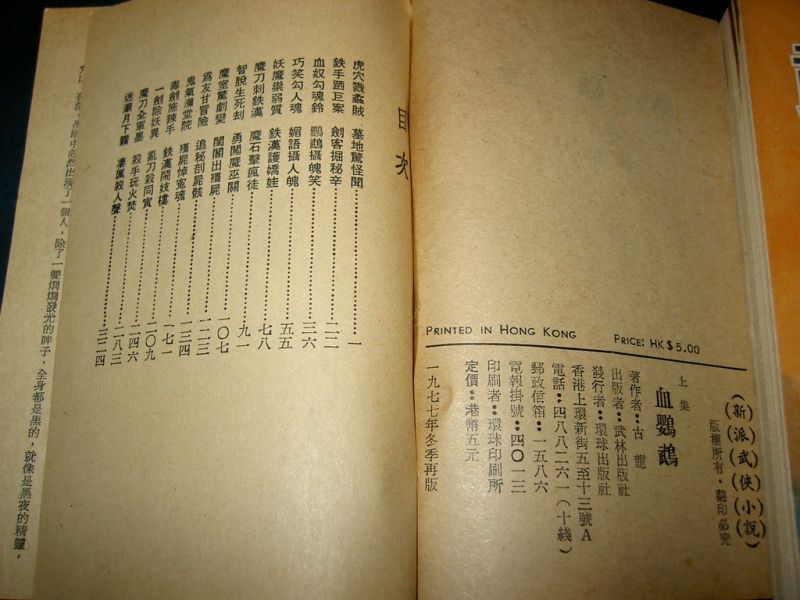 (新派武俠小說)
版權所有・翻印必究
上集
血鸚鵡
著作者：古龍
出版者：武林出版社
發行者：環球出版社
香港上環新街五至十三號A
電話：四八八二六一(十綫)
郵政信箱：一五八六
電報掛號：四〇一三
印刷者：環球印刷所
定價：港幣五元
一九七七年冬季再版
PRINTED IN HONG KONG PRICE: HK$ 5.00
目次
虎穴戮蟊賊 墓地驚怪聞……一
鉄手跴巨案 劍客掘秘辛……二二
血奴勾魂鈴 鸚鵡攝魄笑……三六
巧笑勾人魂 媚語攝人魄……五五
妖魔祟弱質 鉄漢護嬌娃……七八
魔刀刺鉄漢 魔石擊瘋徒……九一
智脫生死刦 勇闖魔巫關……一〇七
魔室驚劇變 閨閣出殭屍……一二三
為友甘冒險 追秘剖屍骸……一三四
鬼氣瀰堂院 殭屍悼寃魂……一七一
毒劍施辣手 鉄漢鬧妓樓……二〇九
一劍除妖異 亂刀殺同寅……二四六
魔刀全軍墨 殺手玩火焚……二八三
迷瀨月下霧 凄風殺人聲……三二四
出現了一個人，除了一雙烱烱發光的眸子，全身都是黑的，就像是黑夜的精靈，